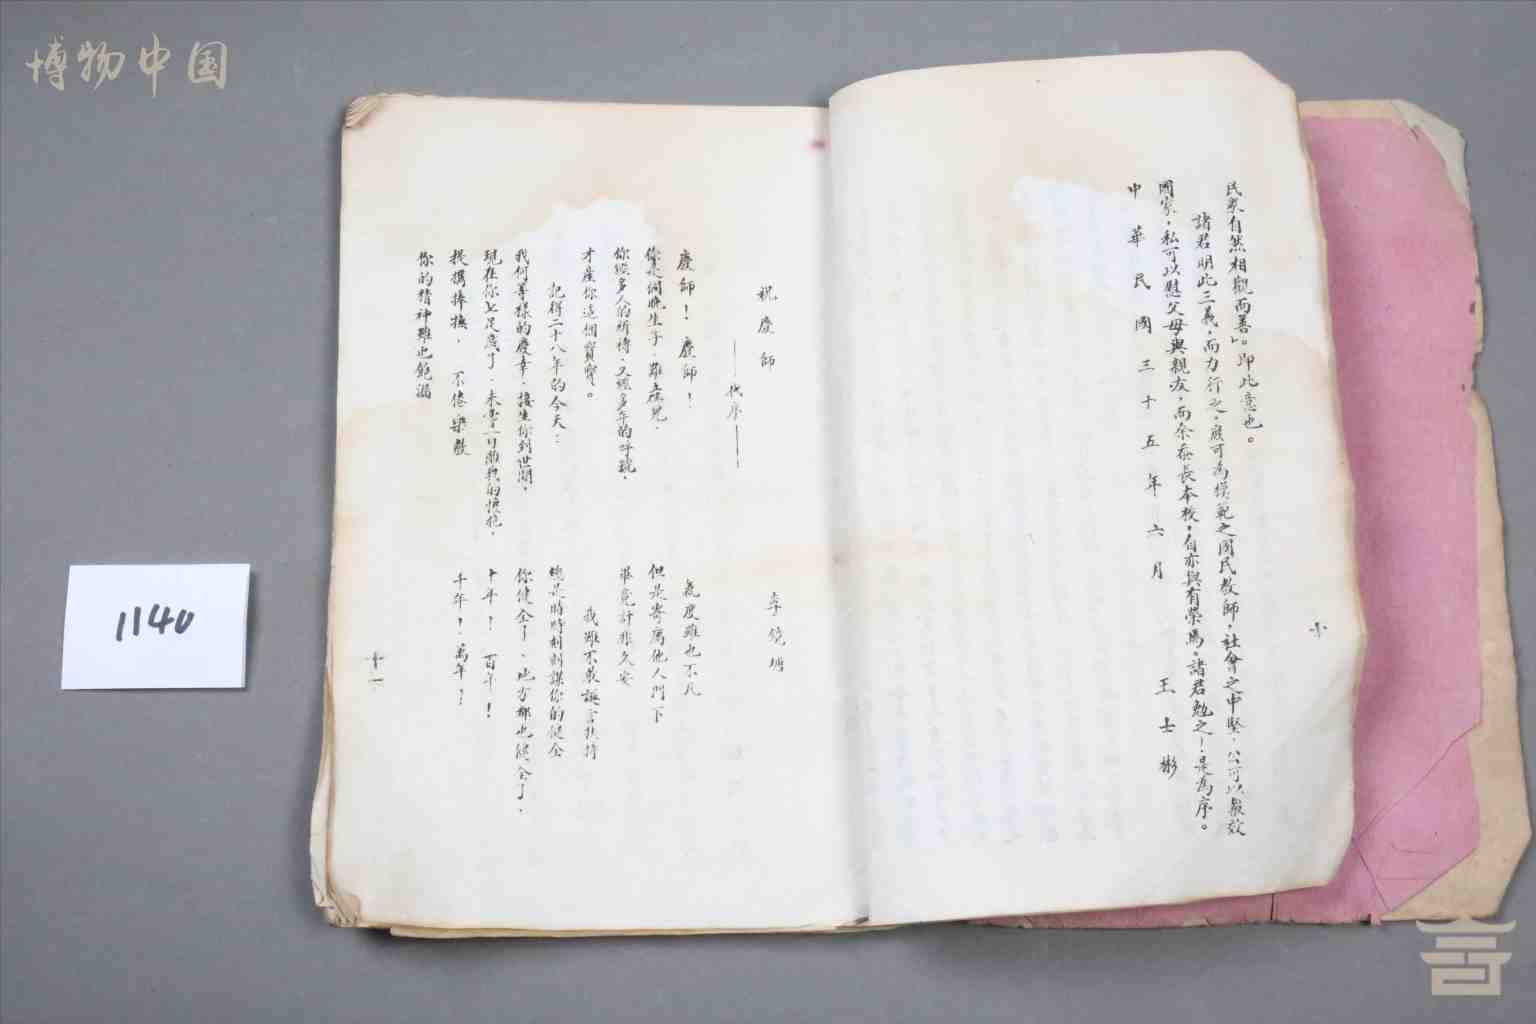 博物中国
民众自然相觀而善」。即此意也。
諸君明此三義，而力行之，庶可為模範之國民教師，社會之中堅，公可以報效
國家，私可以慰父母與親友，而余忝長本校，自亦與有榮焉，諸君勉之！是為序。
中華民國三十五年六月
王士彬
十
祝慶師
——代序——
李曉塘
慶師！慶師！
你是個晚生子，雖生在兒，
你經多人的祈禱，又經多年的呼號，
才產你這個寶寶。
記得二十八年的今天：
我何等樣的慶幸，接生你到世間，
現在你七足歲了，未嘗一日離我的懷抱，
提攜捧撫，不倦樂教
你的精神雖也飽滿
氣度雖也不凡
但是寄寓他人門下
畢竟計非久安
我雖不敢誕言扶持
總是時時刻刻謀你的健全
你健全了，地方都也健全了，
十年！百年！
千年！萬年！
十一
1140